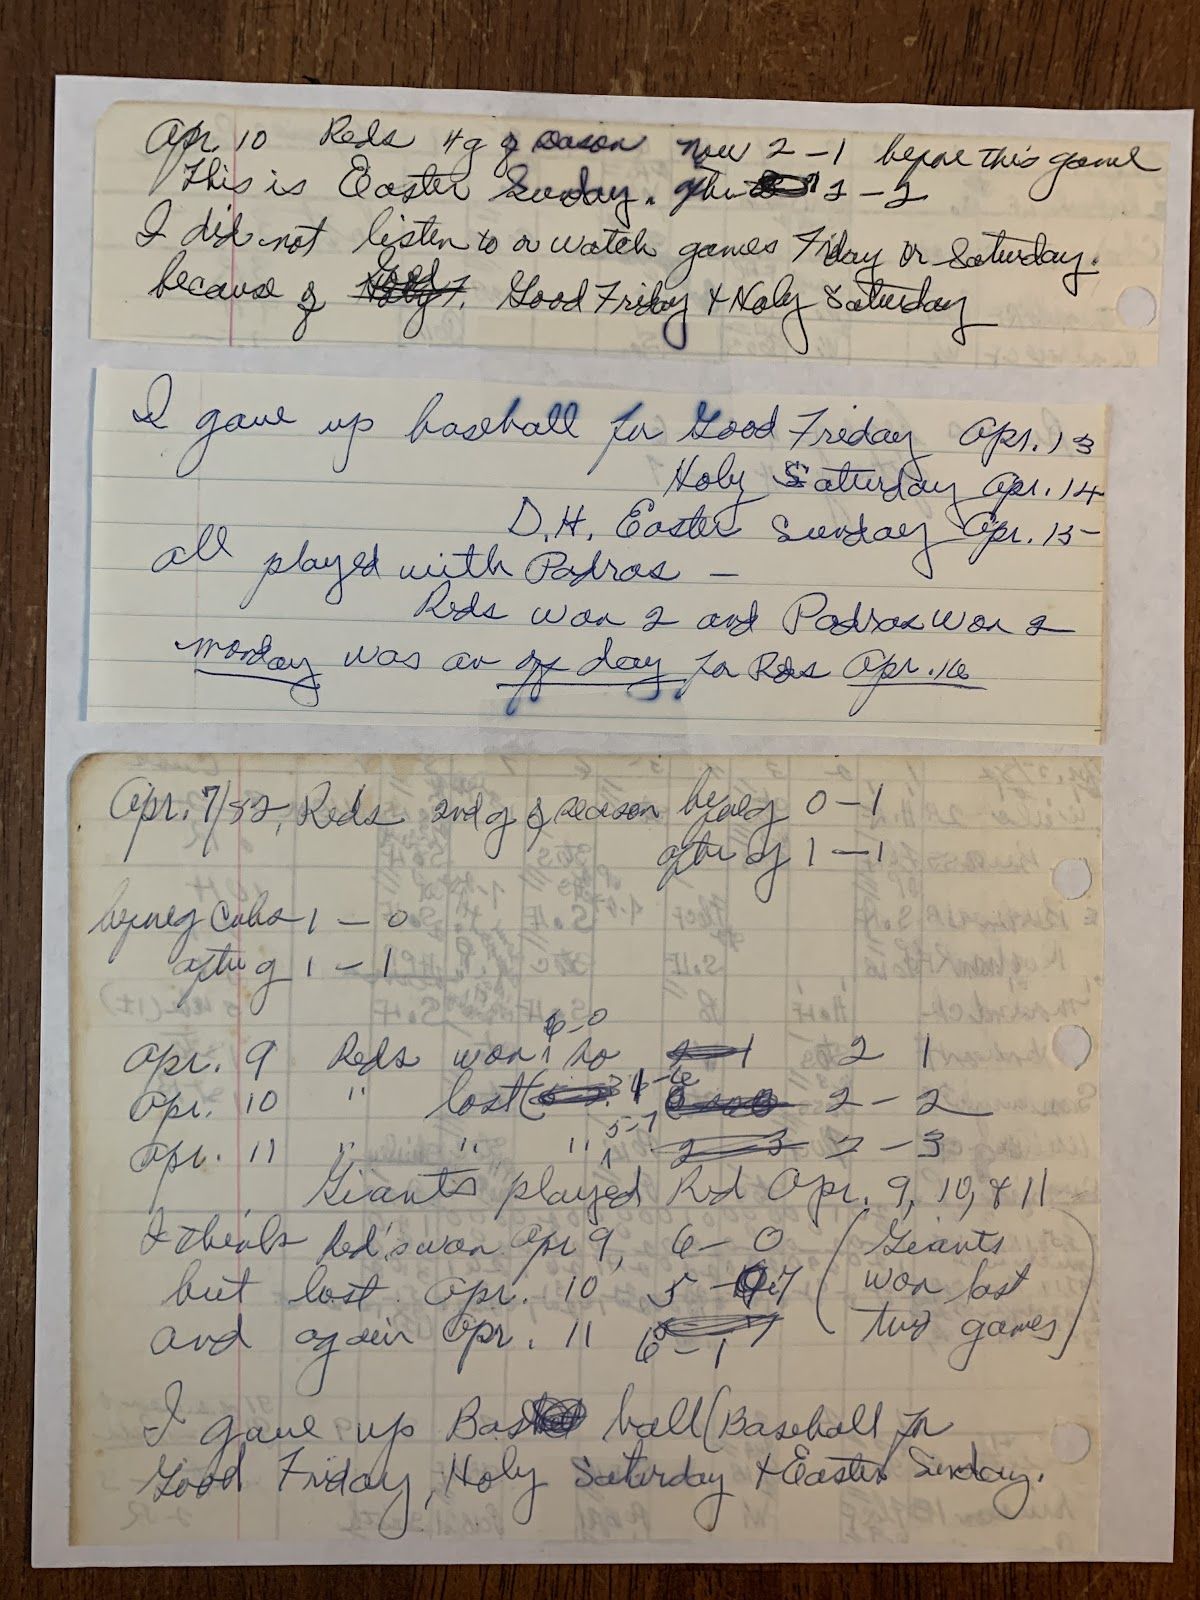 Apr. 10 Reds 4g of season now 2-1 before this game
This is Easter Sunday. 2-2
I did not listen to or watch games Friday or Saturday.
because of Good Friday & Holy Saturday
I gave up baseball for Good Friday Apr. 13
Holy Saturday Apr. 14
D.H. Easter Sunday Apr. 15-
all played with Padras -
Reds won 2 and Padras won 2
Monday was an off day for Reds Apr. 16
Apr. 7/82, Reds 2nd g of season before g 0-1
after g 1-1
before g Cubs 1-0
after g 1-1
6-0
Apr. 9 Reds won 2 1
Apr. 10 " lost 2-2
5-7
Apr. 11 " " " 2-3
Giants played Red Apr. 9, 10, & 11
I think Red's won Apr 9, 6-0 (Giants
but lost Apr. 10 5-7 won last
and again Apr. 11 6-1 two games)
I gave up ball (Baseball for
Good Friday, Holy Saturday & Easter Sunday.